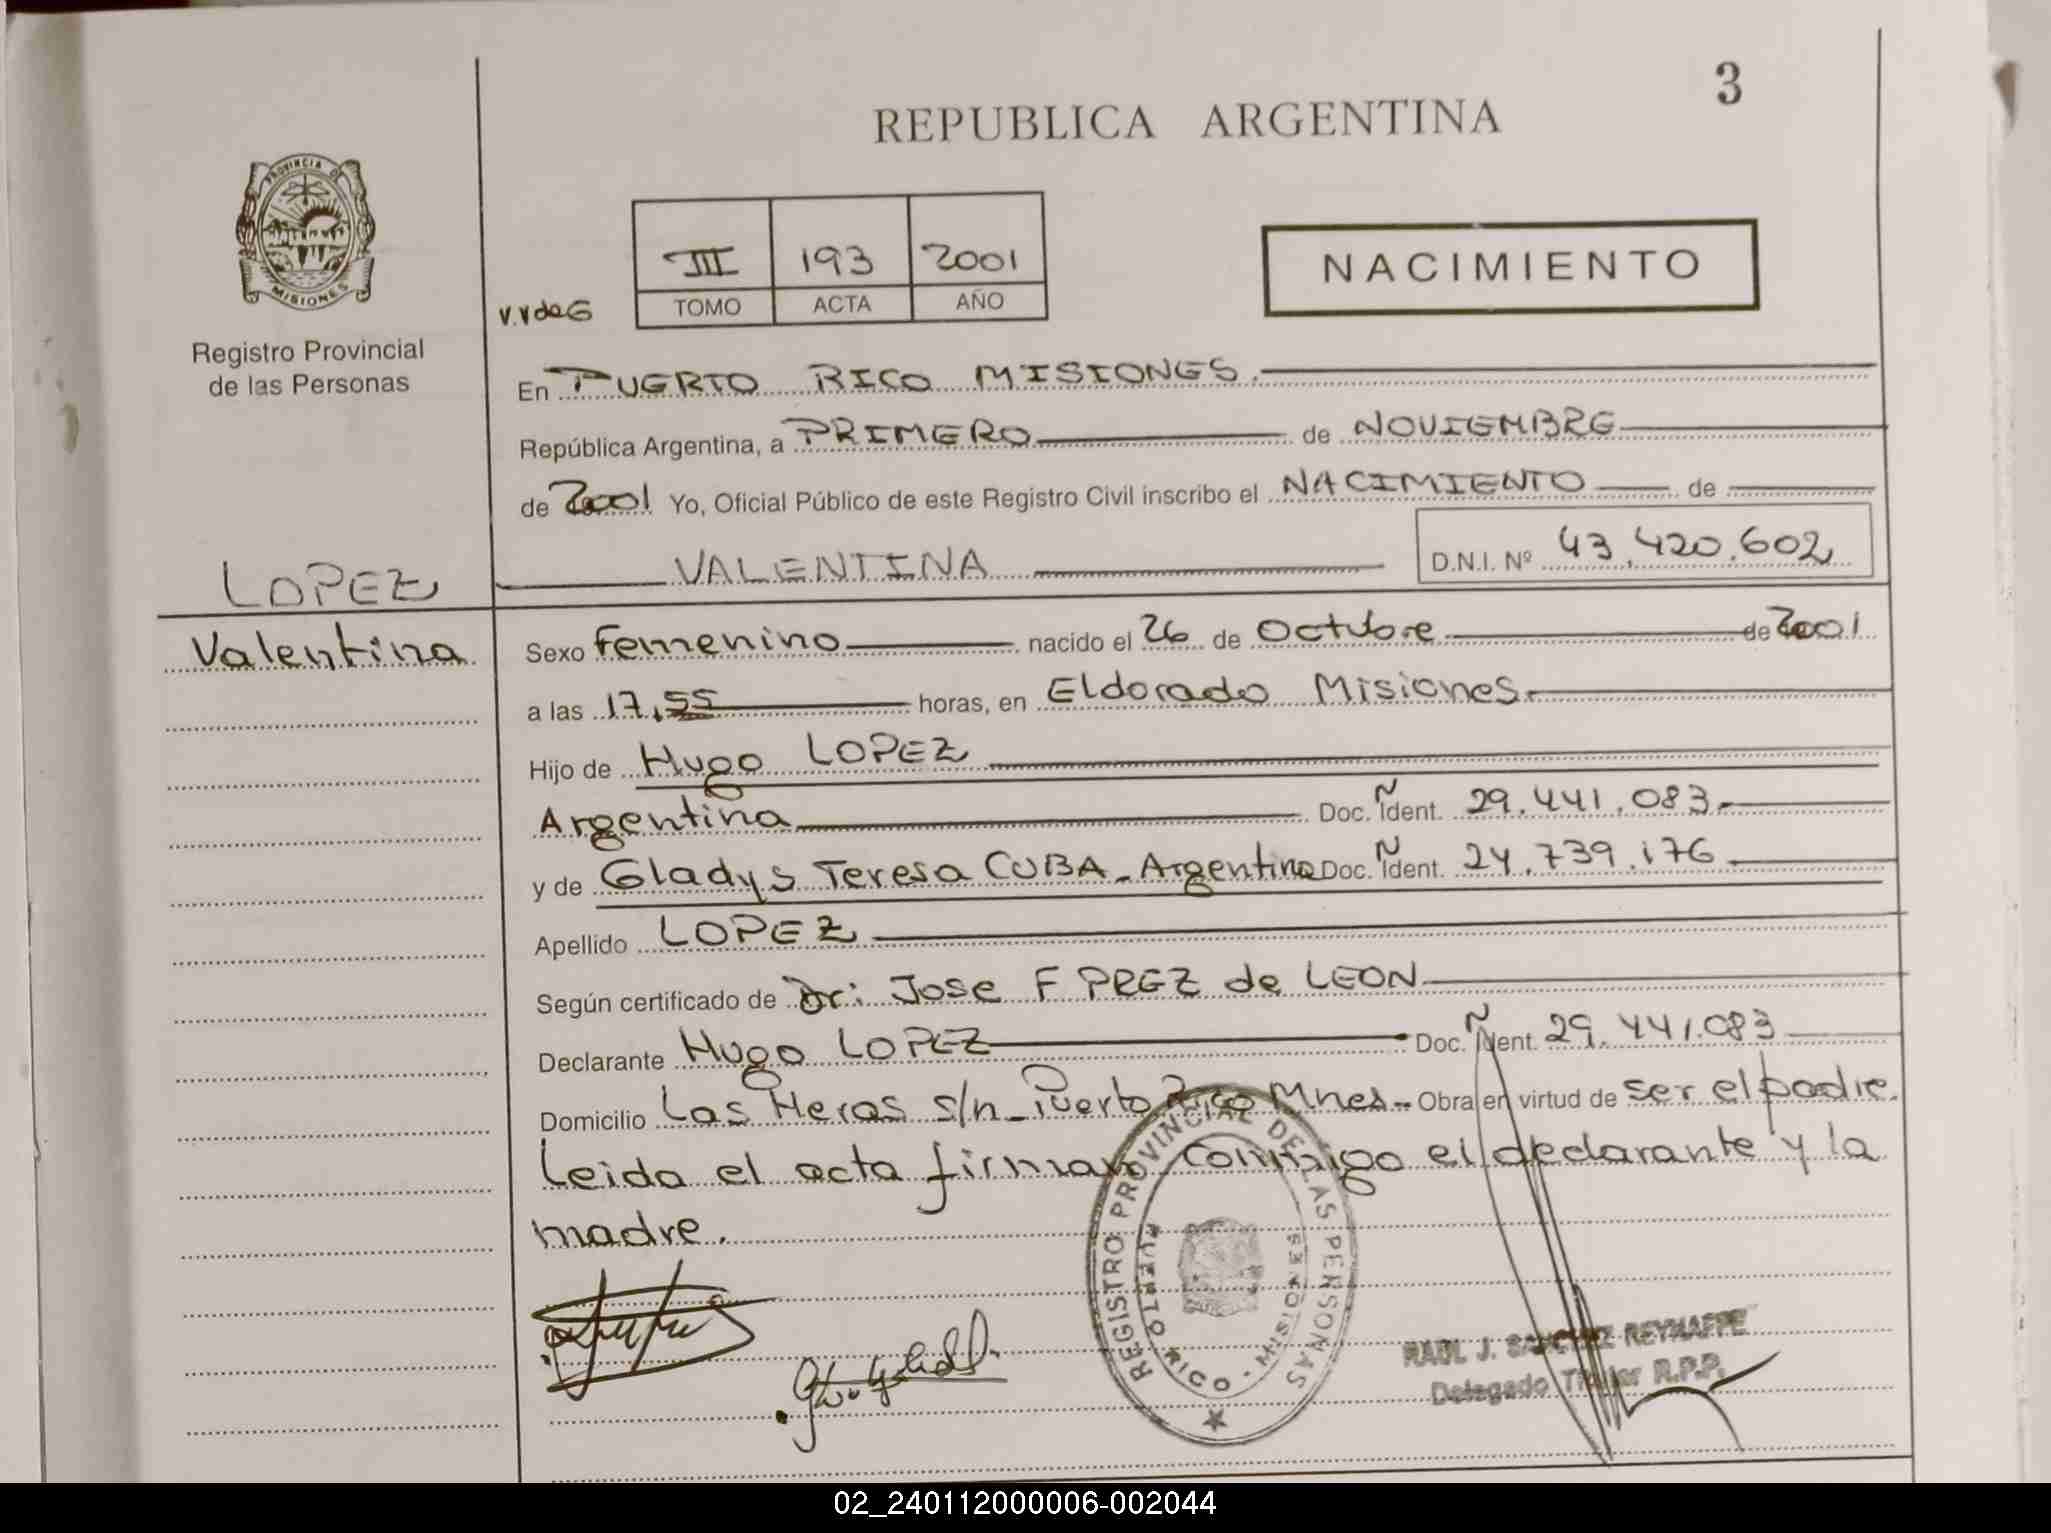 3
REPUBLICA ARGENTINA
PROVINCIA D
MISIONES
Registro Provincial
de las Personas
III 193 2001
TOMO ACTA AÑO
V.V de G
NACIMIENTO
En PUERTO RICO MISIONES.
República Argentina, a PRIMERO de NOVIEMBRE
de 2001 Yo, Oficial Público de este Registro Civil inscribo el NACIMIENTO de
VALENTINA D.N.I. Nº 43.420.602
LOPEZ
Valentina
Sexo Femenino nacido el 26 de Octubre de 2001
a las 17,55 horas, en Eldorado Misiones.
Hijo de Hugo LOPEZ
Argentina Doc. Ñ Ident. 29.441.083.
y de Gladys Teresa CUBA - Argentina Doc. Ñ Ident. 24.739.176
Apellido LOPEZ
Según certificado de Dr: Jose F PREZ de LEON
Declarante Hugo LOPEZ Doc. Ñ Ident. 29.441.083
Domicilio Las Heras s/n - Puerto Rico Mnes - Obra en virtud de ser el padre.
Leida el acta firman conmigo el declarante y la
madre.
REGISTRO PROVINCIAL DE LAS PERSONAS
PUERTO RICO - MISIONES
RAUL J. SANCHEZ REYNAFFE
Delegado Titular R.P.P.
02_240112000006-002044